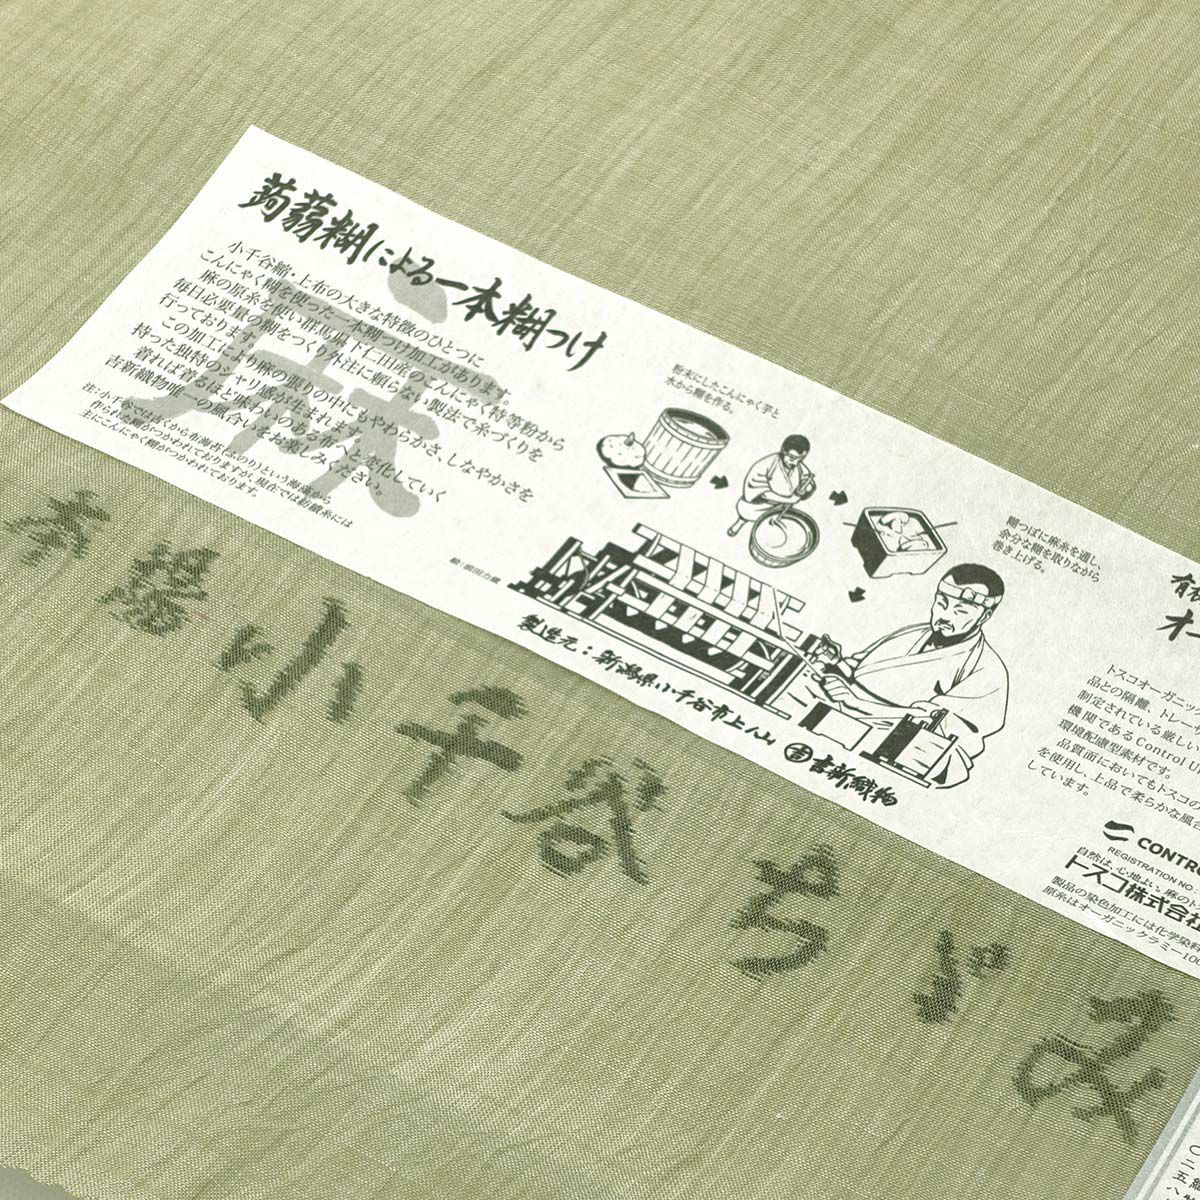 蒟蒻糊による一本糊つけ
小千谷縮・上布の大きな特徴のひとつに
こんにゃく糊を使った一本糊つけ加工があります。
麻の原糸を使い群馬県下仁田産のこんにゃく特等粉から
毎日必要量の糊をつくり外注に頼らない製法で糸づくりを
行っております。
この加工により麻の張りの中にもやわらかさ、しなやかさを
持った独特のシャリ感が生まれます。
着れば着るほど味わいのある布へと変化していく
吉新織物唯一の風合いをお楽しみください。
注:小千谷では古くから布海苔(ふのり)という海藻から
作られた糊がつかわれておりますが、現在では紡績糸には
主にこんにゃく糊がつかわれております。
麻
粉末にしたこんにゃく芋と
水から糊を作る。
糊つぼに麻糸を通し、
余分な糊を取りながら
巻き上げる。
製造元:新潟県小千谷市上ノ山 吉 吉新織物
トスコオーガニッ
品との隔離、トレー
制定されている厳しい
機関であるControl U
環境配慮型素材です。
品質面においてもトスコの
を使用し、上品で柔らかな風合
しています。
CONTRO
REGISTRATION NO
自然は、心地よい。麻のト
トスコ株式会社
製品の染色加工には化学染料
原糸はオーガニックラミー100
本場小千谷ちゞみ